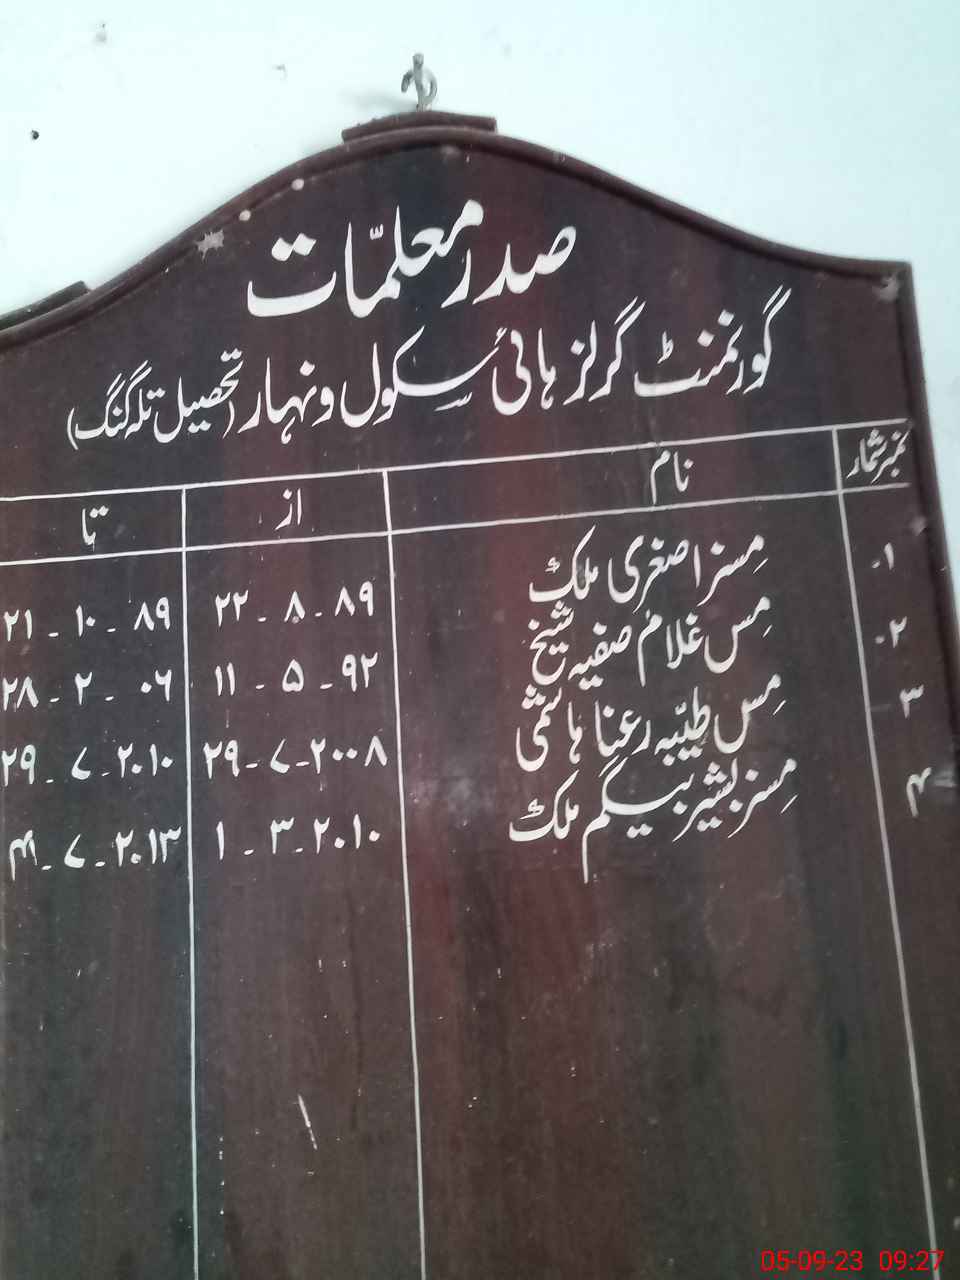 صدر معلمّات
گورنمنٹ گرلز ہائی سکول ونہار (تحصیل تلہ گنگ)
نمبر شمار نام از تا
۱۔ مسز اصغری ملک ۲۲ - ۸ - ۸۹ ۲۱ - ۱۰ - ۸۹
۲۔ مس غلام صفیہ شیخ ۱۱ - ۵ - ۹۲ ۲۸ - ۲ - ۰۶
۳ مس طیبّہ رعنا ہاشمی ۲۹ - ۷ - ۲۰۰۸ ۲۹ - ۷ - ۲۰۱۰
۴ مسز بشیر بیگم ملک ۱ - ۳ - ۲۰۱۰ - ۷ - ۲۰۱۳
05-09-23 09:27